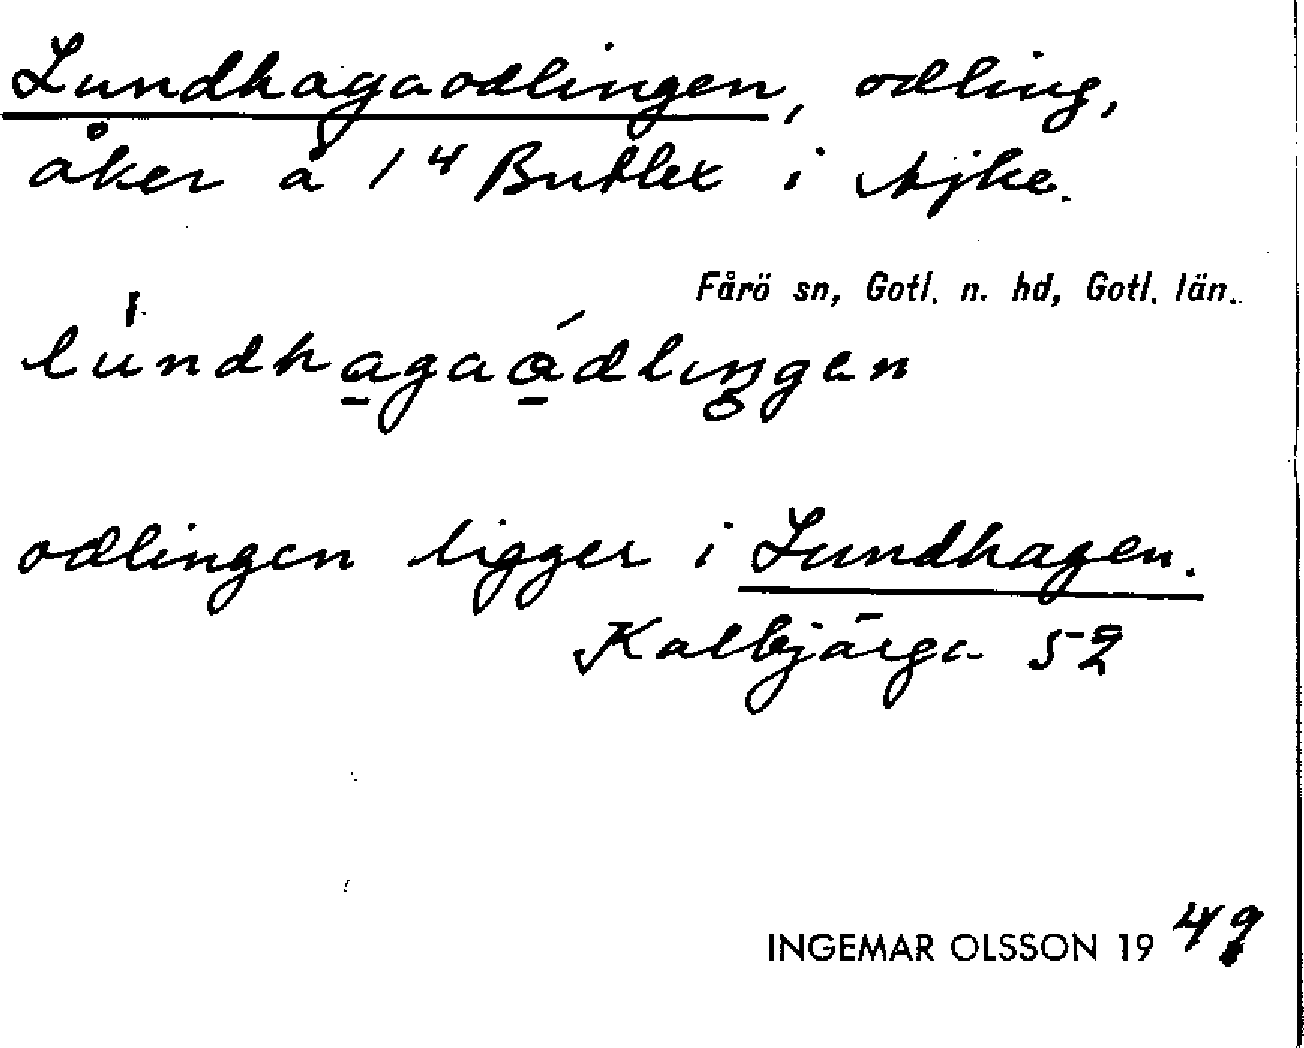 Lundhagaodlingen, odling,
åker å 1⁴ Butlex i Ajke.
Fårö sn, Gotl. n. hd, Gotl. län.
odlingen ligger i Lundhagen.
Kalbjärga 52
INGEMAR OLSSON 1949